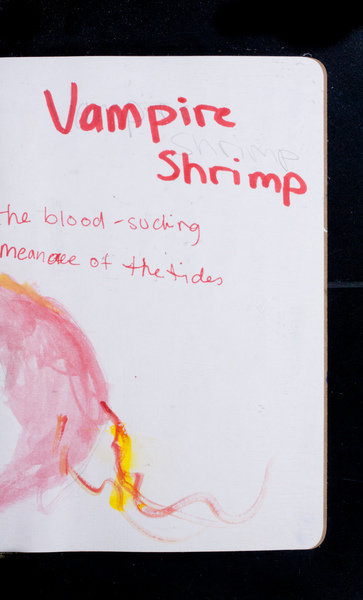 Vampire
Shrimp
the blood-sucking
meanace of the tides